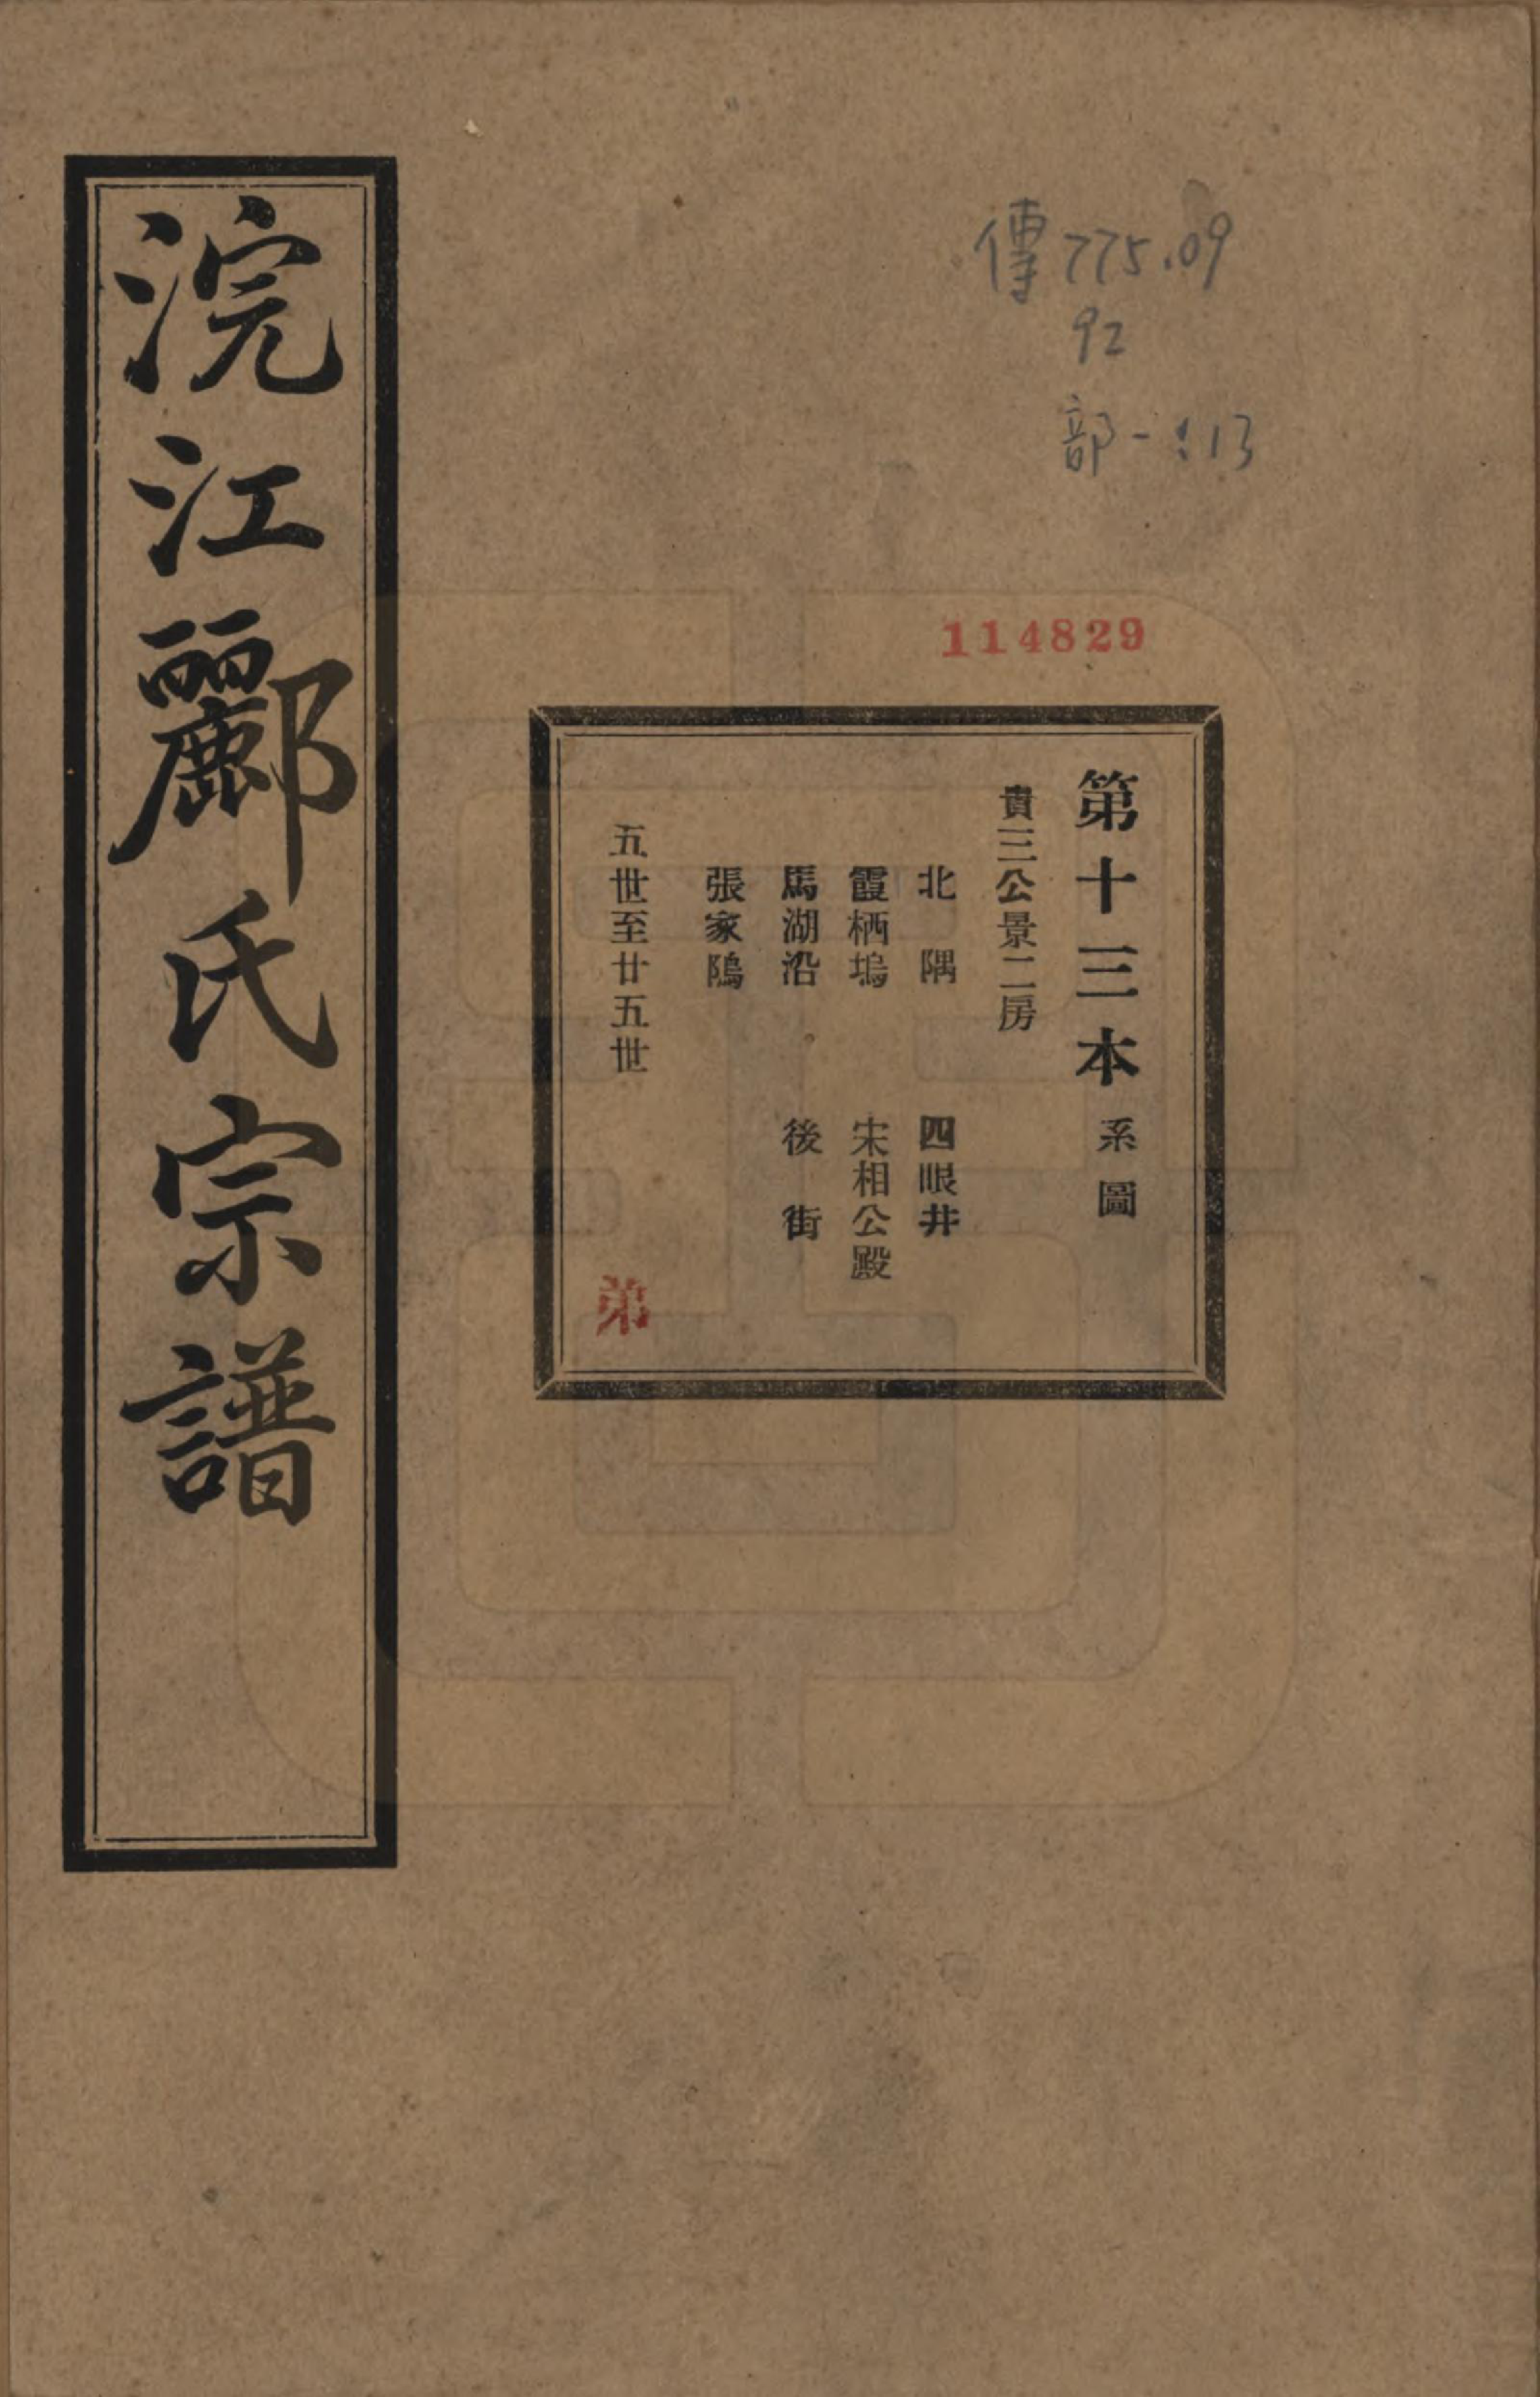 傳 775.09
92
部一:13
114829
第十三本 系圖
貴三公景二房
北隅 四眼井
霞栖塢 宋相公殿
馬湖沿 後街
張家隖
五世至廿五世
弟
浣江酈氏宗譜